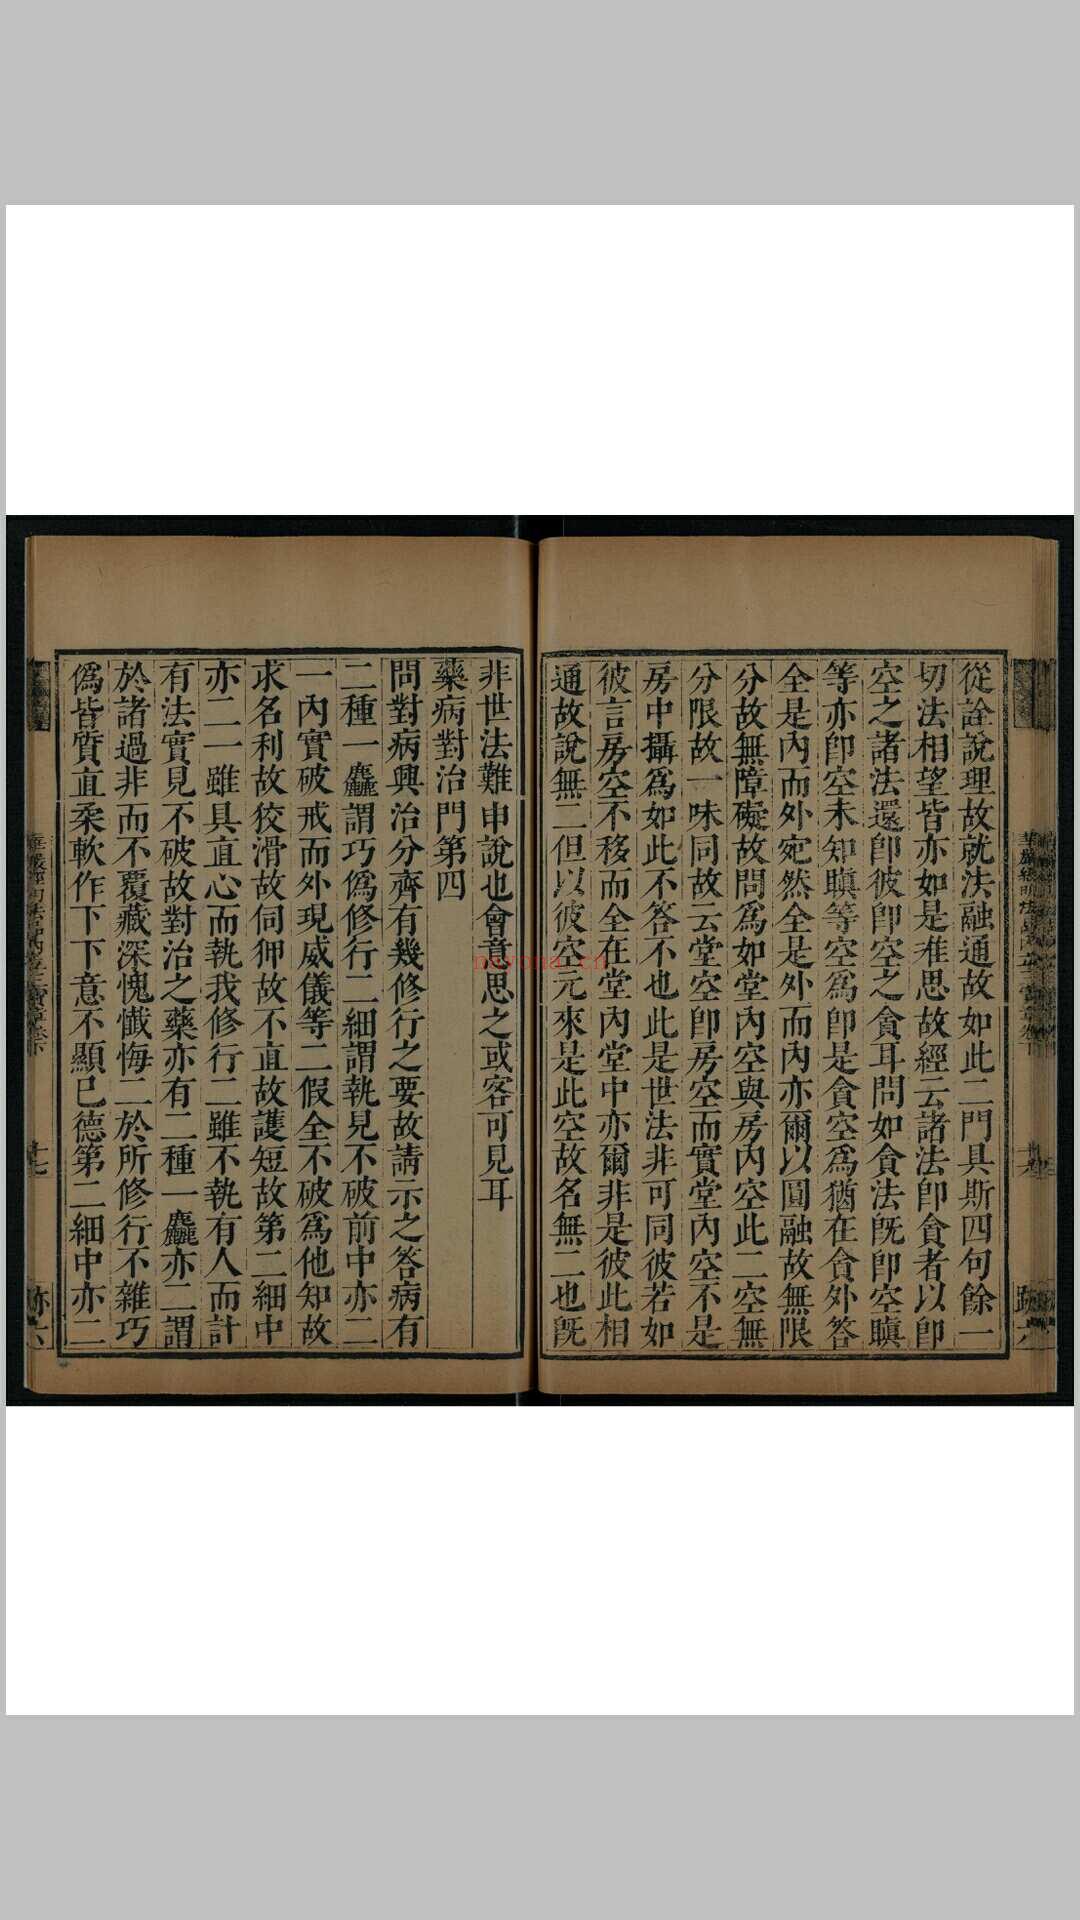 從詮說理故就法融通故如此二門具斯四句餘一
切法相望皆亦如是准思故經云諸法卽貪者以卽
空之諸法還卽彼卽空之貪耳問如貪法旣卽空瞋
等亦卽空未知瞋等空爲卽是貪空爲猶在貪外答
全是內而外宛然全是外而內亦爾以圓融故無限
分故無障礙故問爲如堂內空與房內空此二空無
分限故一味同故云堂空卽房空而實堂內空不是
房中攝爲如此不答不也此是世法非可同彼若如
彼言房空不移而全在堂內堂中亦爾非是彼此相
通故說無二但以彼空元來是此空故名無二也旣
非世法難申說也會意思之或容可見耳
藥病對治門第四
問對病興治分齊有幾修行之要故請示之答病有
二種一麤謂巧僞修行二細謂執見不破前中亦二
一內實破戒而外現威儀等二假全不破爲他知故
求名利故狡滑故伺狎故不直故護短故第二細中
亦二一雖具直心而執我修行二雖不執有人而計
有法實見不破故對治之藥亦有二種一麤亦二謂
於諸過非而不覆藏深愧懺悔二於所修行不雜巧
僞皆質直柔軟作下下意不顯已德第二細中亦二